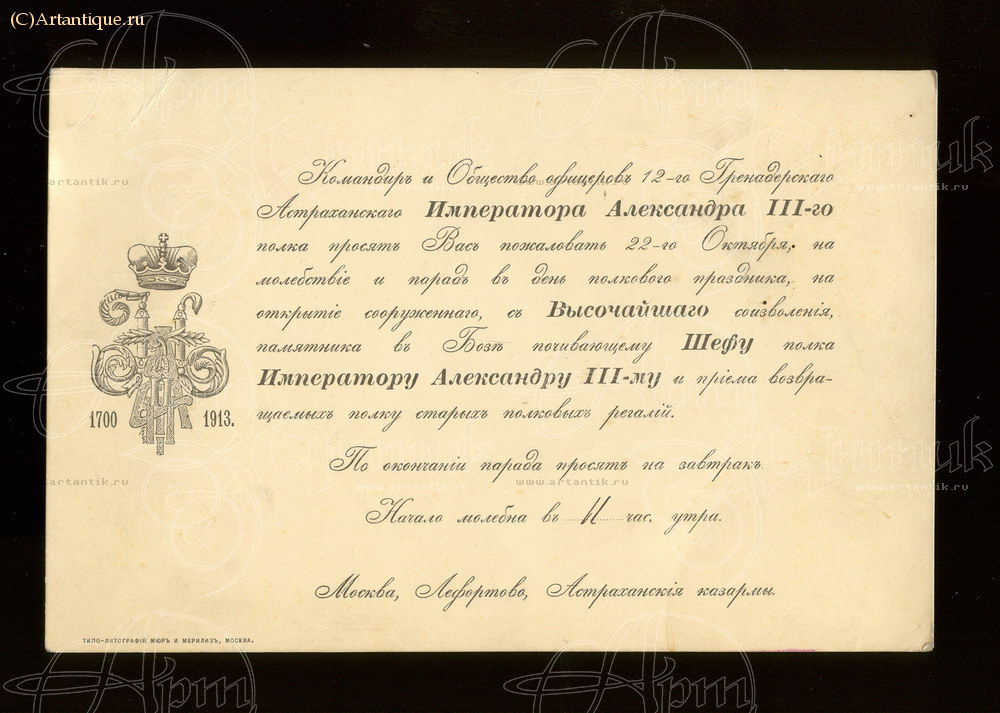 (C)Artantique.ru
Командиръ и Общество офицеровъ 12-го Гренадерскаго
Астраханскаго Императора Александра III-го
полка просятъ Васъ пожаловать 22-го Октября, на
молебствіе и парадъ въ день полковаго праздника, на
открытіе сооруженнаго, съ Высочайшаго соизволенія,
памятника въ Бозѣ почивающему Шефу полка
Императору Александру III-му и пріема возвра-
щаемыхъ полку старыхъ полковыхъ регалій.
1700 1913.
По окончаніи парада просятъ на завтракъ.
Начало молебна въ 11 час. утра.
Москва, Лефортово, Астраханскія казармы.
ТИПО-ЛИТОГРАФІЯ МЮРЪ И МЕРИЛИЗЪ, МОСКВА.
www.artantik.ru